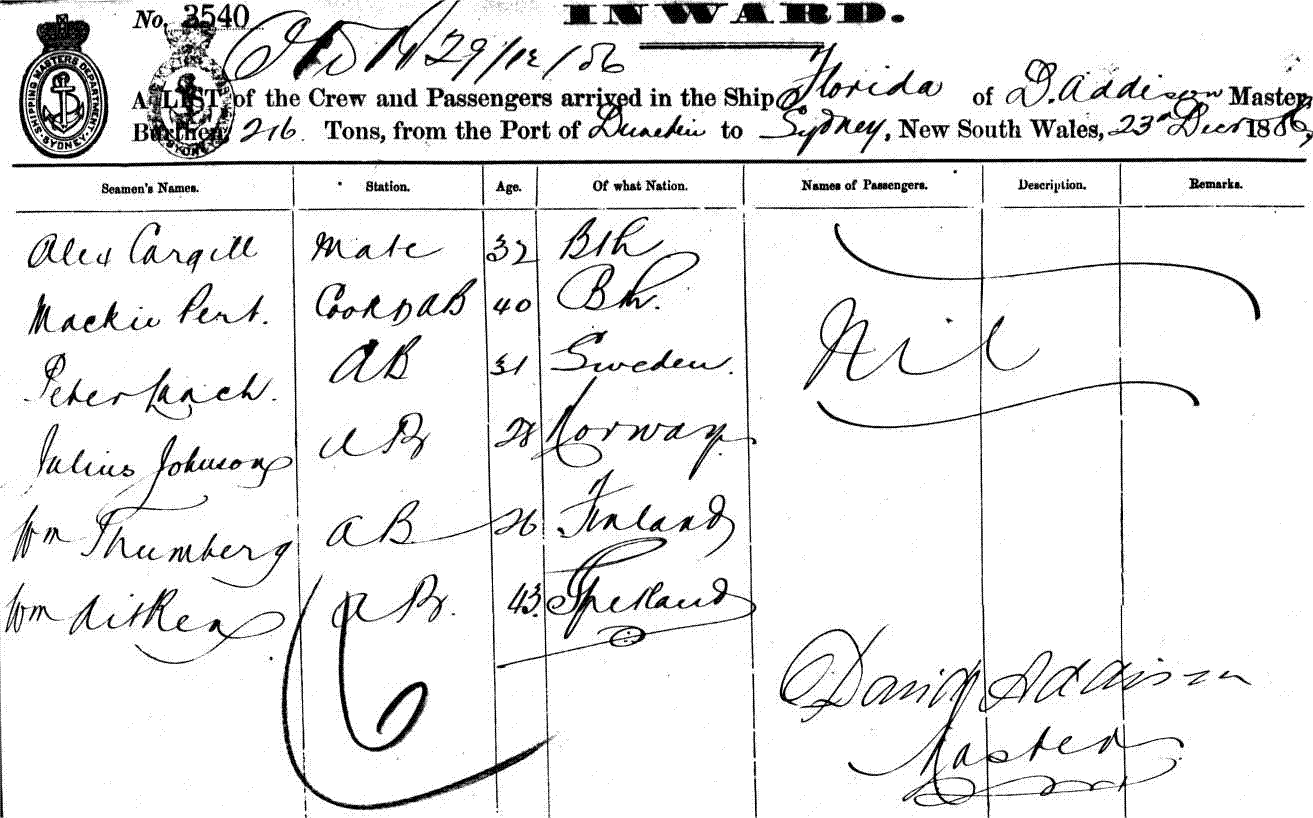 No. 3540
INWARD.
29/12/86
SHIPPING MASTERS DEPARTMENT SYDNEY
A LIST of the Crew and Passengers arrived in the Ship Florida of D. Addison Master,
Burthen 216 Tons, from the Port of to Sydney, New South Wales, 23d Decr 1886,
Seamen's Names. Station. Age. Of what Nation. Names of Passengers. Description. Remarks.
Alex Cargill Mate 32 Bth
Mackie Pert. Cook & AB 40 Bth.
Peter AB 31 Sweden.
Julius Johnson AB 28 Norway.
Wm Thumberg AB 26 Finland
Wm Aitken AB. 43.
Nil
6
David Addison
Master